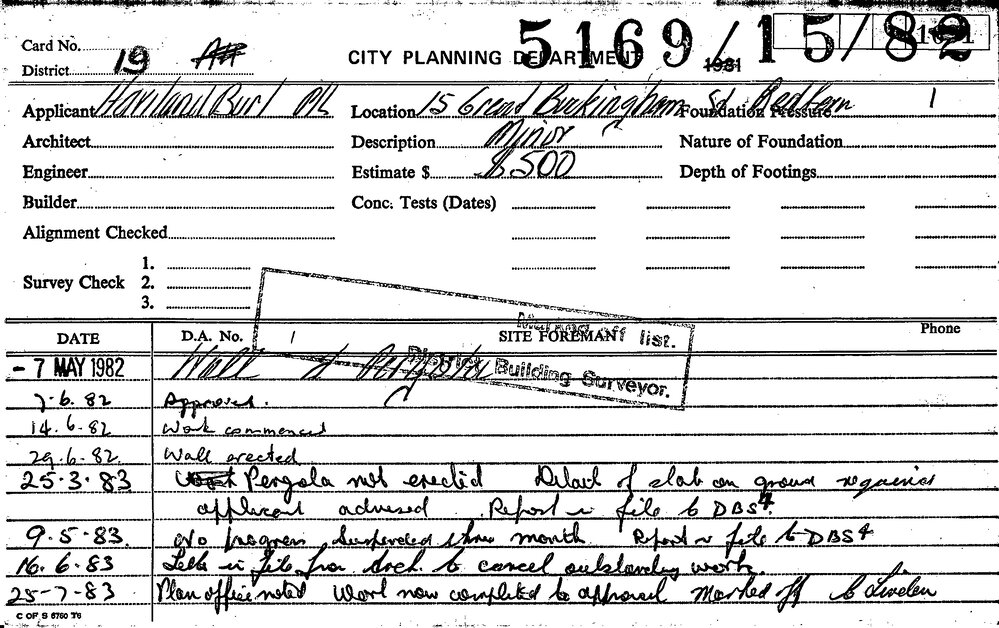 Card No. 5169/15/82
District 19 CITY PLANNING DEPARTMENT 1981
Applicant Location 15 Great Buckingham St Redfern Foundation Pressure 1
Architect Description Minor Nature of Foundation
Engineer Estimate $ $500 Depth of Footings
Builder Conc. Tests (Dates)
Alignment Checked
1.
Survey Check 2.
3.
Marking off list.
District Building Surveyor.
DATE D.A. No. SITE FOREMAN Phone
- 7 MAY 1982 Wall & Pergola
7.6.82 Approved.
14.6.82 Work commenced
29.6.82 Wall erected
25.3.83 Pergola not erected Detail of slab on ground required
applicant advised Report in file to DBS4.
9.5.83. No progress suspended three month Report in file to DBS4
16.6.83 Letter in file from Arch. to cancel outstanding work.
25-7-83 Plan office noted Work now completed to approved Marked off
C OF S 6760 T6